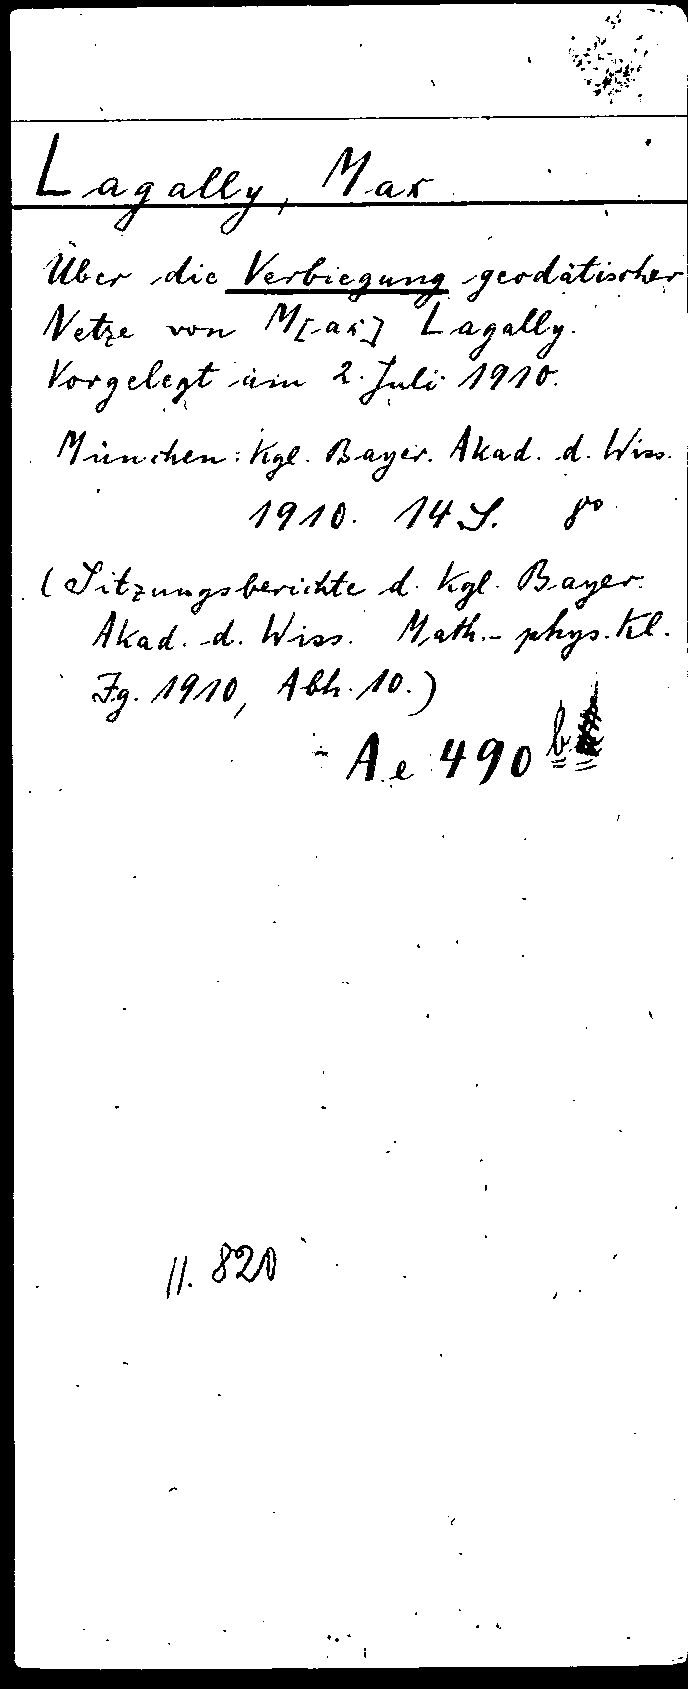 Lagally, Max
Über die Verbiegung geodätischer
Netze von M[ax] Lagally.
Vorgelegt am 2. Juli 1910.
München: Kgl. Bayer. Akad. d. Wiss.
1910. 14 S. 8°
(Sitzungsberichte d. Kgl. Bayer.
Akad. d. Wiss. Math.-phys. Kl.
Jg. 1910, Abh. 10.)
Ae 490 b
11. 820